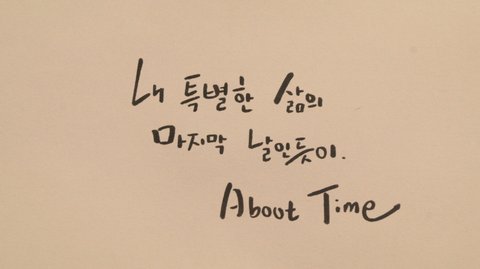 내 특별한 삶의
마지막 날인듯이.
About Time